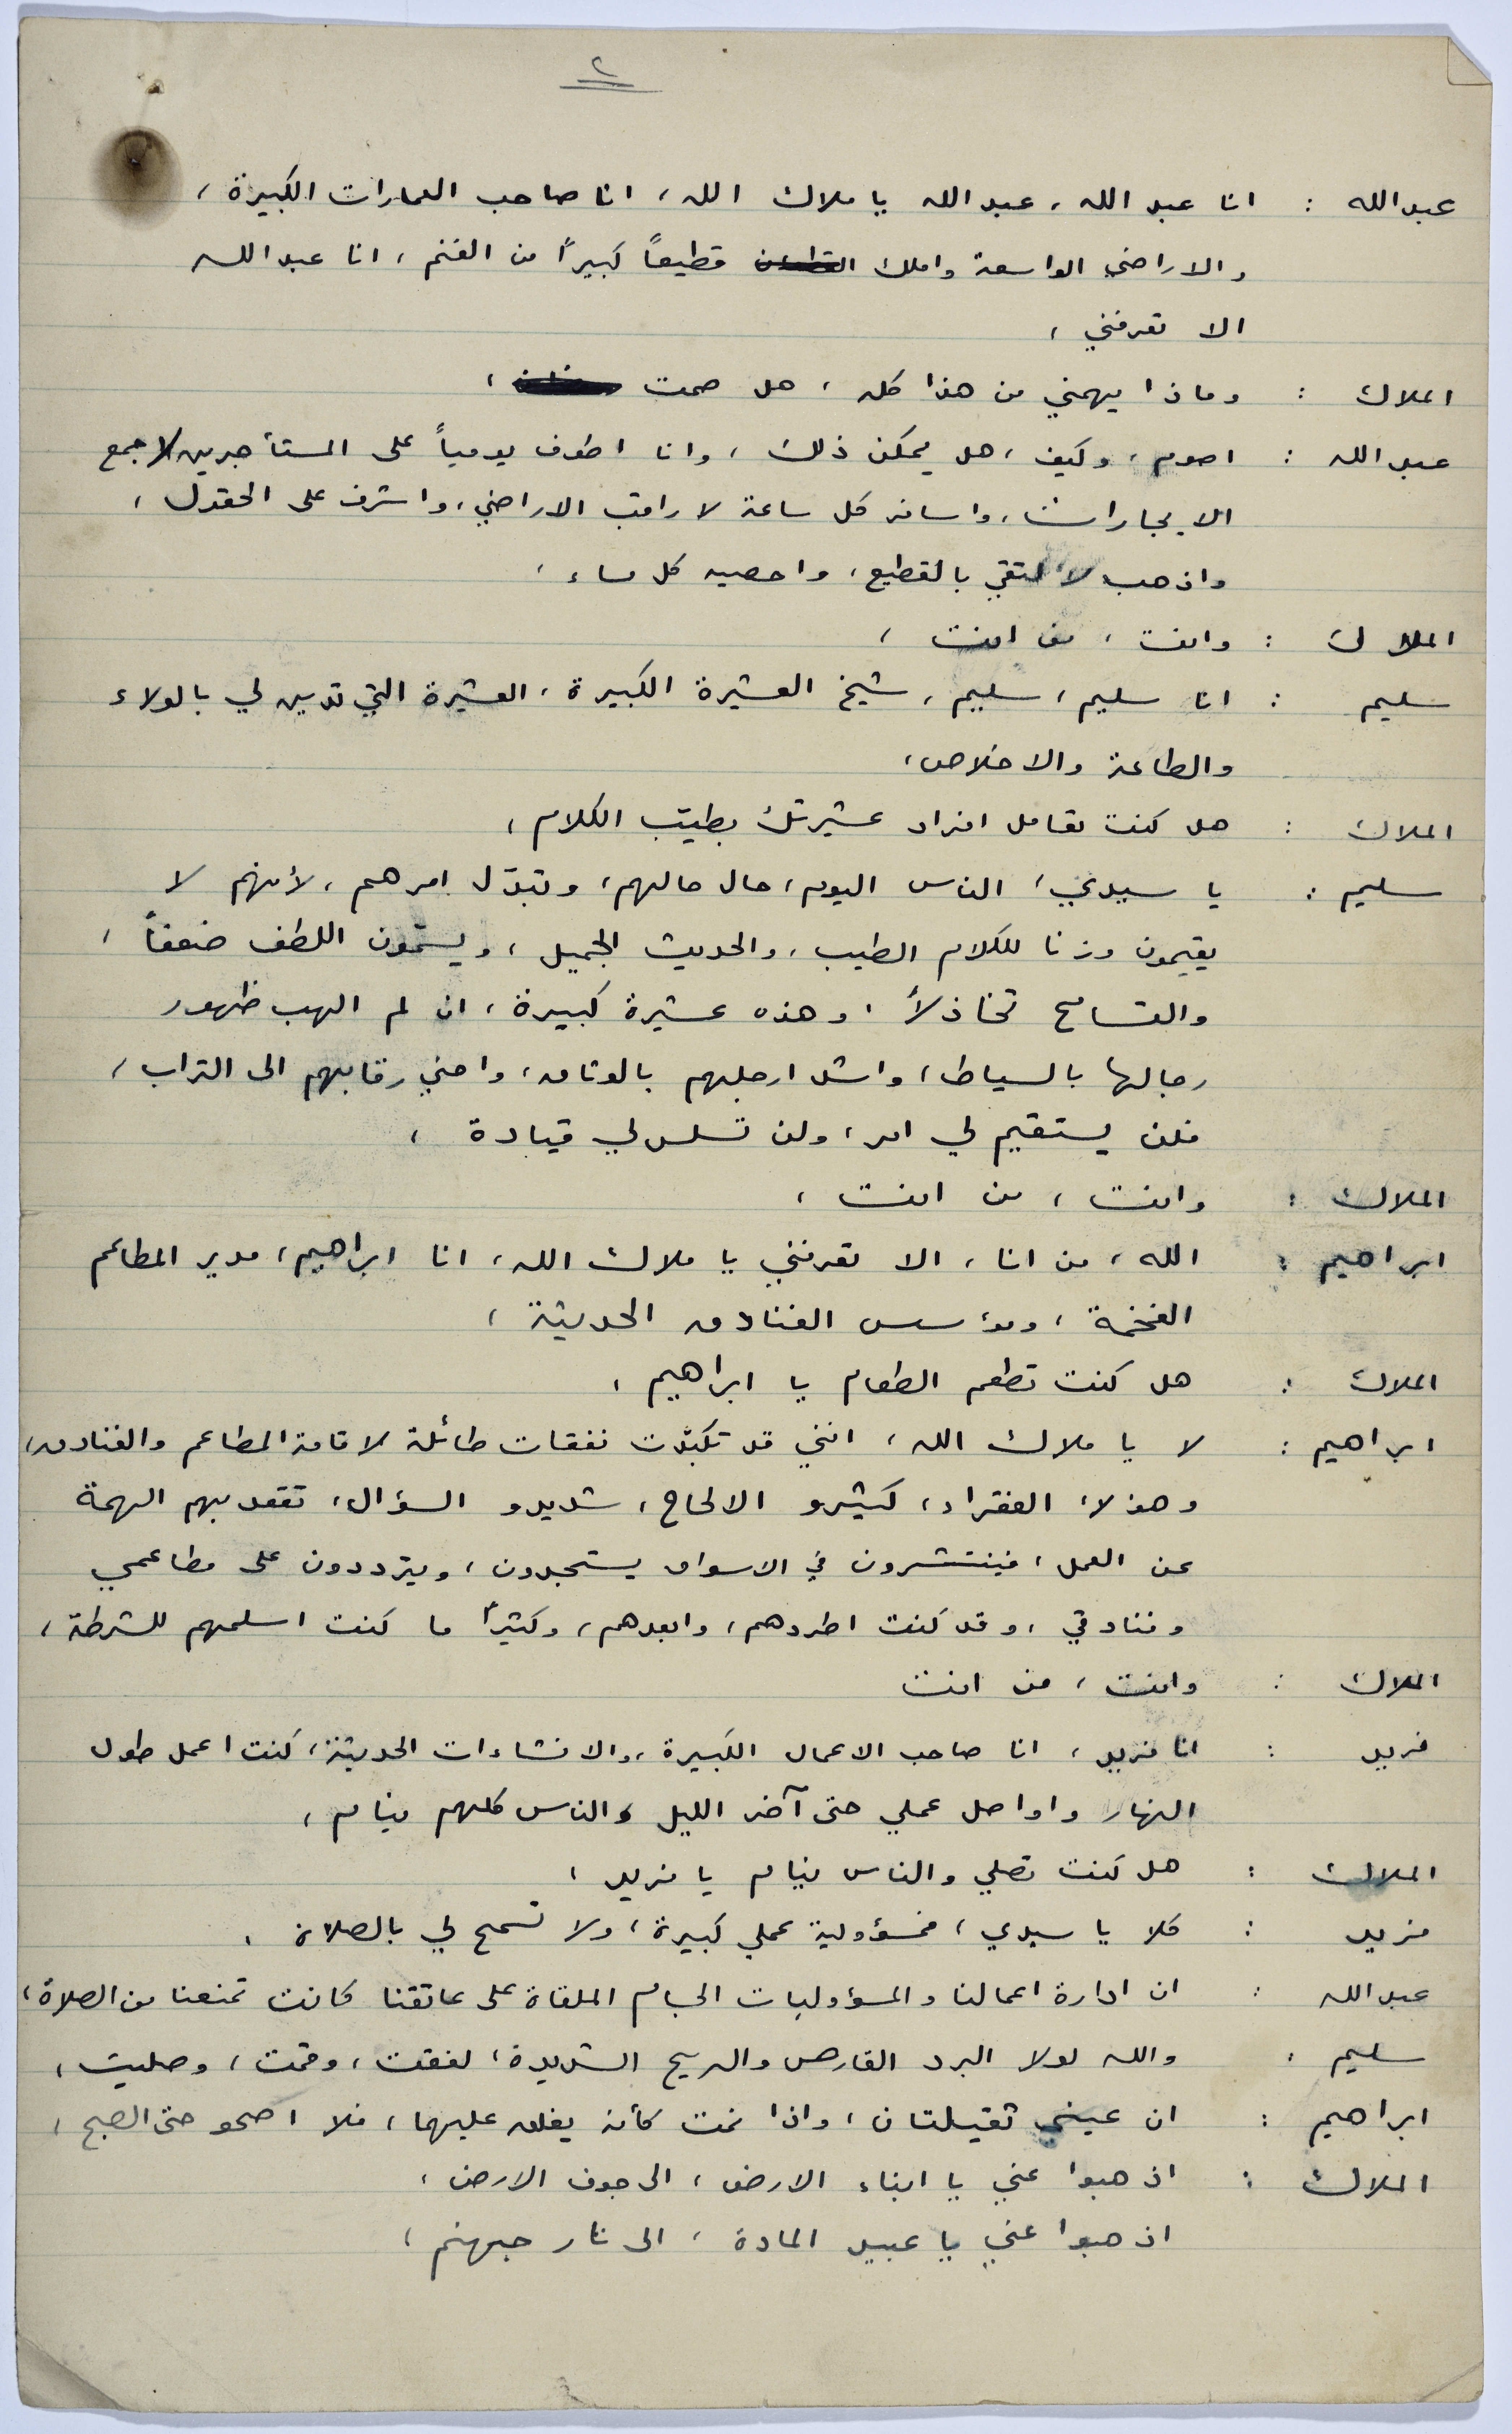 ٢
عبدالله : انا عبد الله ، عبد الله يا ملاك الله ، انا صاحب العمارات الكبيرة ،
والاراضي الواسعة واملك قطيعاً كبيراً من الغنم ، انا عبد الله
الا تعرفني ،
الملاك : وماذا يهمني من هذا كله ، هل صمت ،
عبد الله : اصوم ، وكيف ، هل يمكن ذلك ، وانا اطوف يومياً على المستأجرين لاجمع
الايجارات ، واسافر كل ساعة لاراقب الاراضي ، واشرف على الحقول ،
واذهب لالتقي بالقطيع ، واحصيه كل مساء ،
الملاك : وانت ، من انت ،
سليم : انا سليم ، سليم ، شيخ العشيرة الكبيرة ، العشيرة التي تدين لي بالولاء
والطاعة والاخلاص ،
الملاك : هل كنت تعامل افراد عشيرتك بطيّب الكلام ،
سليم : يا سيدي ، الناس اليوم ، حال حالهم ، وتبدّل امرهم ، لأنهم لا
يقيمون وزنا للكلام الطيب ، والحديث الجميل ، ويسمّون اللطف ضعفاً ،
والتسامح تخاذلاً ، وهذه عشيرة كبيرة ، ان لم الهب ظهور
رجالها بالسياط ، واشد ارجلهم بالوثاق ، واحني رقابهم الى التراب ،
فلن يستقيم لي امر ، ولن تسلس لي قيادة ،
الملاك : وانت ، من انت ،
ابراهيم : الله ، من انا ، الا تعرفني يا ملاك الله ، انا ابراهيم ، مدير المطاعم
الفخمة ، ومؤسس الفنادق الحديثة ،
الملاك : هل كنت تطعم الطعام يا ابراهيم ،
ابراهيم : لا يا ملاك الله ، انني قد تكبّدت نفقات طائلة لاقامة المطاعم والفنادق ،
وهؤلاء الفقراء ، كثيرو الالحاح ، شديدو السؤال ، تقعد بهم الهمة
عن العمل ، فينتشرون في الاسواق يستجدون ، ويترددون على مطاعمي
وفنادقي ، وقد كنت اطردهم ، وابعدهم ، وكثيراً ما كنت اسلمهم للشرطة ،
الملاك : وانت ، من انت
فريد : انا فريد ، انا صاحب الاعمال الكبيرة ، والانشاءات الحديثة ، كنت اعمل طول
النهار واواصل عملي حتى آخر الليل والناس كلهم نيام ،
الملاك : هل كنت تصلي والناس نيام يا فريد ،
فريد : كلا يا سيدي ، فمسؤولية عملي كبيرة ، ولا تسمح لي بالصلاة .
عبدالله : ان ادارة اعمالنا والمسؤوليات الجسام الملقاة على عاتقنا كانت تمنعنا من الصلاة ،
سليم : والله لولا البرد القارص والريح الشديدة ، لفقت ، وقمت ، وصليت ،
ابراهيم : ان عيني ثقيلتان ، واذا نمت كأنه يغلق عليهما ، فلا اصحو حتى الصبح ،
الملاك : اذهبوا عني يا ابناء الارض ، الى جوف الارض ،
اذهبوا عني يا عبيد المادة ، الى نار جهنم ،